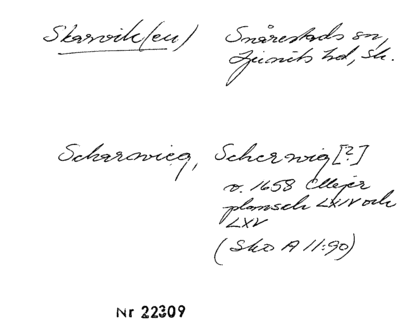 Skarvik(en) Snårestads sn,
Ljunits hd, Sk.
Scharwieg, Scherwig [?]
v. 1658 Meijer
plansch LXIV och
LXV
(SkO A 11:90)
Nr 22309